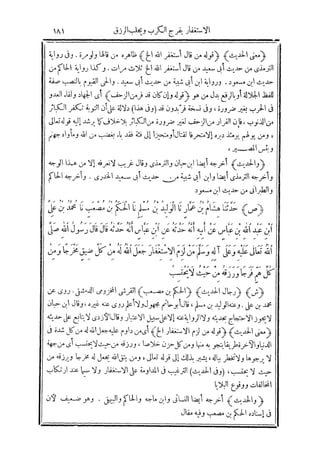 الاستغفار يفرج الكرب ويجلب الرزق ١٨١
﴿معنى الحديث﴾ ﴿قوله من قال أستغفر الله الخ﴾ ظاهره من قالها ولو مرة. وفى رواية
الترمذى من حديث أبى سعيد من قال أستغفر الله الخ ثلاث مرات. وكذا رواية الحاكم من
حديث ابن مسعود. ورواية ابن أبى شيبة من حديث أبى سعيد. والحى القيوم بالنصب صفة
للفظ الجلالة أو بالرفع بدل من هو ﴿قوله وإن كان قد فر من الزحف﴾ أى الجهاد ولقاء العدو
فى الحرب بغير ضرورة. وفى نسخة فر بدون قد ﴿وفى هذا﴾ دلالة على أن التوبة تكفر الكبائر
من الذنوب. فإن الفرار من الزحف لغير ضرورة من الكبائر بلا خلاف كما يرشد إليه قوله تعالى
ومن يولهم يومئذ دبره إلا متحرفا لقتال أو متحيزا إلى فئة فقد باء بغضب من الله ومأواه جهنم
وبئس المصير
﴿والحديث﴾ أخرجه أيضا ابن حبان والترمذى وقال غريب لا نعرفه إلا من هذا الوجه
وأخرجه الترمذى أيضا وابن أبى شيبة من حديث أبى سعيد الخدرى. وأخرجه الحاكم
والطبرانى من حديث ابن مسعود
﴿ص﴾ حَدَّثَنَا هِشَامُ بْنُ عَمَّارٍ نَا الْوَلِيدُ بْنُ مُسْلِمٍ نَا الْحَكَمُ بْنُ مُصْعَبٍ نَا مُحَمَّدُ بْنُ عَلِىِّ
ابْنِ عَبْدِ اللهِ بْنِ عَبَّاسٍ عَنْ أَبِيهِ أَنَّهُ حَدَّثَهُ عَنِ ابْنِ عَبَّاسٍ أَنَّهُ حَدَّثَهُ قَالَ قَالَ رَسُولُ اللهِ صَلَّى
اللهُ تَعَالَى عَلَيْهِ وَعَلَى آلِهِ وَسَلَّمَ مَنْ لَزِمَ الاِسْتِغْفَارَ جَعَلَ اللهُ لَهُ مِنْ كُلِّ ضِيقٍ مَخْرَجًا وَمِنْ
كُلِّ هَمٍّ فَرَجًا وَرَزَقَهُ مِنْ حَيْثُ لاَ يَحْتَسِبُ
﴿ش﴾ ﴿رجال الحديث﴾ ﴿الحكم بن مصعب﴾ القرشى المخزومى الدمشقى. روى عن
محمد بن على. وعنه الوليد بن مسلم. قال أبو حاتم مجهول ولا أعلم روى عنه غيره. وقال ابن حبان
لا يجوز الاحتجاج بحديثه ولا الرواية عنه إلا على سبيل الاعتبار وقال الأزدى لا يتابع على حديثه
﴿معنى الحديث﴾ ﴿قوله من لزم الاستغفار الخ﴾ أى من داوم عليه جعل الله له من كل شدة فى
الدنيا والآخرة طريقا ينجو به منها ومن كل حزن خلاصا. ورزقه من حيث لا يحتسب أى من جهة
لا يرجوها ولا تخطر بباله. يشير بذلك إلى قوله تعالى. ومن يتق الله يجعل له مخرجا ويرزقه من
حيث لا يحتسب. ﴿وفى الحديث﴾ الترغيب فى المداومة على الاستغفار ولا سيما عند ارتكاب
المخالفات ووقوع البلايا
﴿والحديث﴾ أخرجه أيضا النسائى وابن ماجه والحاكم والبيهقى. وهو ضعيف لأن
فى إسناده الحكم بن مصعب وفيه مقال